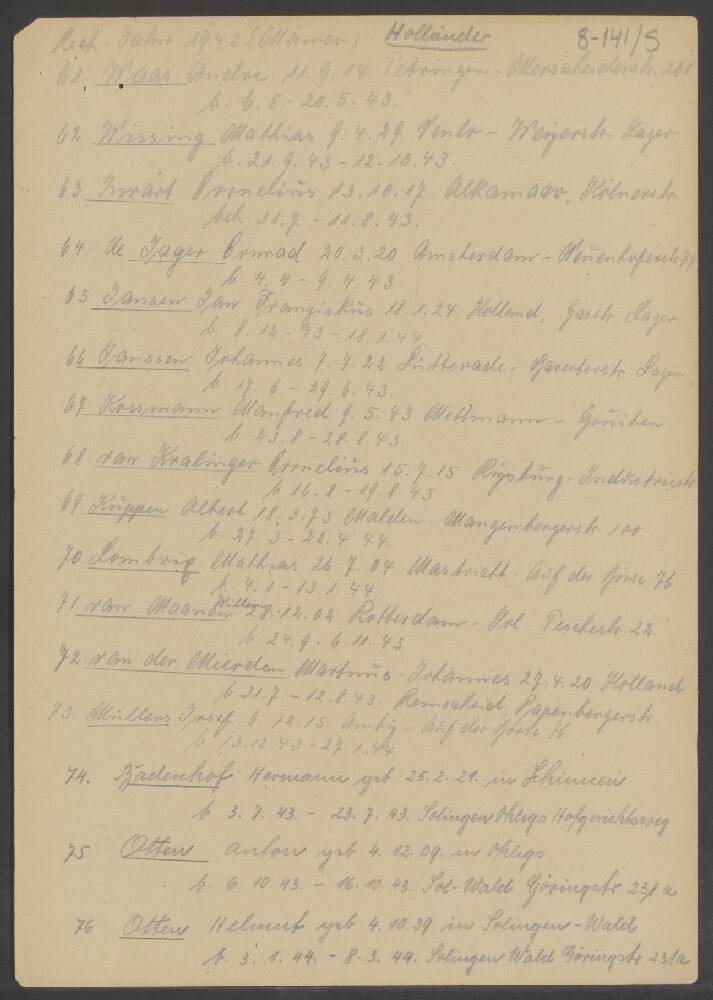 Rech. Jahr 1943 (Männer) Holländer 8-141/S
61. Waas Andre 11.9.14 Petringen - Merscheiderstr. 201
b. 6.5 - 20.5.43.
62 Wissing Mathias 9.4.29 Venlo - Weyerstr. Lager
b. 21.9.43 - 12.10.43.
63 Zwart Cornelius 13.10.17 Alkamaar, Kölnerstr
beh. 31.7 - 11.8.43.
64. de Jager Conrad 20.3.20 Amsterdam - Neuenhoferstr 79
b. 4.4 - 9.4.43
65 Jansen Jan Franziskus 18.1.24 Holland, Lager
b. 8.12 - 43 - 18.1.44
66 Janssen Johannes 7.7.22 Lutterade; Lager
b. 17.6 - 29.6.43.
67 Kossmann Manfred 9.5.43 Mettmann - Gruiten
b 23.8 - 28.8.43
68 van Kralinger Cornelius 15.7.15 Rijsburg - Industriestr
b 16.8 - 19.8.43
69 Kuppen Albert 18.3.73 Malden - Mangenbergerstr 100
b. 27.3 - 22.4.44.
70 Lombrix Mathias 26.7.04 Mastricht - Auf der Höse 76
b. 4.1 - 13.1.44
71 van Maanen Willem 28.12.02 Rotterdam - Sol. Peschestr. 22
b. 24.9 - 6.11.43
72. van der Mierden Martinus - Johannes 27.4.20 Holland
b 31.7 - 12.8.43. Remscheid, Papenbergerstr
73. Müllers Josef 6.12.15 Amby - Auf der Höse 76
b 13.12.43 - 27.1.44
74. Badenhof Hermann geb 25.2.21. in Schinnen
b 3.7.43. - 23.7.43. Solingen Ohligs Hofgerichtsweg
75 Otten Anton geb 4.12.09. in Ohligs
b. 6.10.43. - 16.10.43. Sol-Wald Göringstr 231 a
76 Otten Helmut geb 4.10.39 in Solingen-Wald
b. 3.1.44. - 8.3.44. Solingen Wald Göringstr 231a